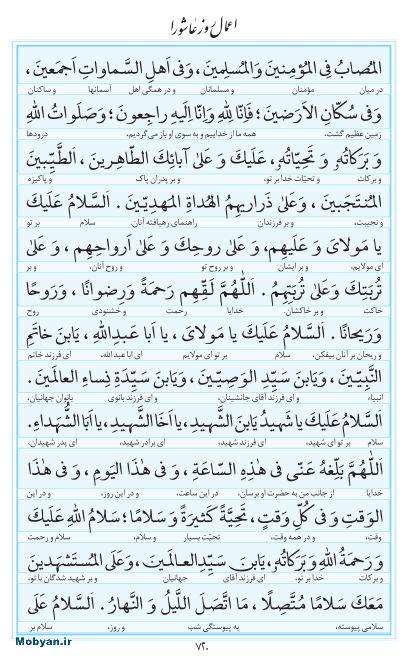 اعمال روز عاشورا
المُصابُ فِی المُؤمِنینَ وَالمُسلِمینَ، وَفی اَهلِ السَّماواتِ اَجمَعینَ،
در میان مؤمنان و مسلمانان و در همگی اهل آسمانها و ساکنان
وَفی سُکّانِ الاَرَضینَ؛ فَاِنّا لِلّٰهِ وَاِنّا اِلَیهِ راجِعونَ؛ وَصَلَواتُ اللّٰهِ
زمین عظیم گشت، همه ما از خداییم و به سوی او باز می‌گردیم. درودها
وَ بَرَکاتُهُ وَ تَحِیّاتُهُ، عَلَیکَ وَ عَلیٰ آبائِکَ الطّاهِرینَ، الطَّیِّبینَ
و برکات و تحیّات خدا بر تو، و بر پدران پاک و پاکیزه
المُنتَجَبینَ، وَعَلیٰ ذَراریهِمُ الهُداةِ المَهدِیّینَ. اَلسَّلامُ عَلَیکَ
و نجیبت، و بر فرزندان راهنمای رهیافته آنان. سلام بر تو
یا مَولایَ وَ عَلَیهِم، وَ عَلیٰ روحِکَ وَ عَلیٰ اَرواحِهِم، وَ عَلیٰ
ای مولایم، و بر ایشان و بر روح تو و روح آنان، و بر
تُربَتِکَ وَعَلیٰ تُربَتِهِم. اَللّٰهُمَّ لَقِّهِم رَحمَةً وَرِضوانًا، وَرَوحًا
خاکت و بر خاکشان. خدایا رحمت و خشنودی روح
وَرَیحانًا. اَلسَّلامُ عَلَیکَ یا مَولایَ، یا اَبا عَبدِاللّٰهِ، یَابنَ خاتَمِ
و ریحان بر آنان بیفکن. سلام بر تو ای مولایم ای ابا عبدالله، ای فرزند خاتم
النَّبِیّینَ، وَیَابنَ سَیِّدِ الوَصِیّینَ، وَیَابنَ سَیِّدَةِ نِساءِ العالَمینَ.
انبیاء و ای فرزند آقای جانشینان، و ای فرزند بانوی بانوان جهانیان،
اَلسَّلامُ عَلَیکَ یا شَهیدُ یَابنَ الشَّهیدِ، یا اَخَا الشَّهیدِ، یا اَبَا الشُّهَداءِ.
سلام بر تو ای شهید، ای فرزند شهید، ای برادر شهید، ای پدر شهیدان.
اَللّٰهُمَّ بَلِّغهُ عَنّی فی هٰذِهِ السّاعَةِ، وَ فی هٰذَا الیَومِ، وَ فی هٰذَا
خدایا از جانب من به حضرت او برسان، در این ساعت، و در این روز، و در این
الوَقتِ وَ فی کُلِّ وَقتٍ، تَحِیَّةً کَثیرَةً وَ سَلامًا؛ سَلامُ اللّٰهِ عَلَیکَ
وقت، و در همه وقت، تحیّت بسیار و سلام، سلام و رحمت
وَ رَحمَةُ اللّٰهِ وَبَرَکاتُهُ، یَابنَ سَیِّدِ العالَمینَ، وَعَلَی المُستَشهَدینَ
و برکات خدا بر تو، ای فرزند آقای جهانیان و بر شهید شدگان با تو،
مَعَکَ سَلامًا مُتَّصِلًا، مَا اتَّصَلَ اللَّیلُ وَ النَّهارُ. اَلسَّلامُ عَلَی
سلامی پیوسته، به پیوستگی شب و روز، سلام بر
Mobyan.ir
۷۲۰